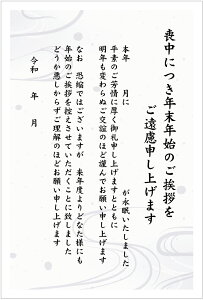 喪中につき年末年始のご挨拶を
ご遠慮申し上げます
本年　月に　　　　　が永眠いたしました
平素のご芳情に厚く御礼申し上げますとともに
明年も変わらぬご交誼のほど謹んでお願い申し上げます
なお　恐縮ではございますが　来年度よりどなた様にも
年始のご挨拶を控えさせていただくことに致しました
どうか悪しからずご理解のほどお願い申し上げます
令和　年　月